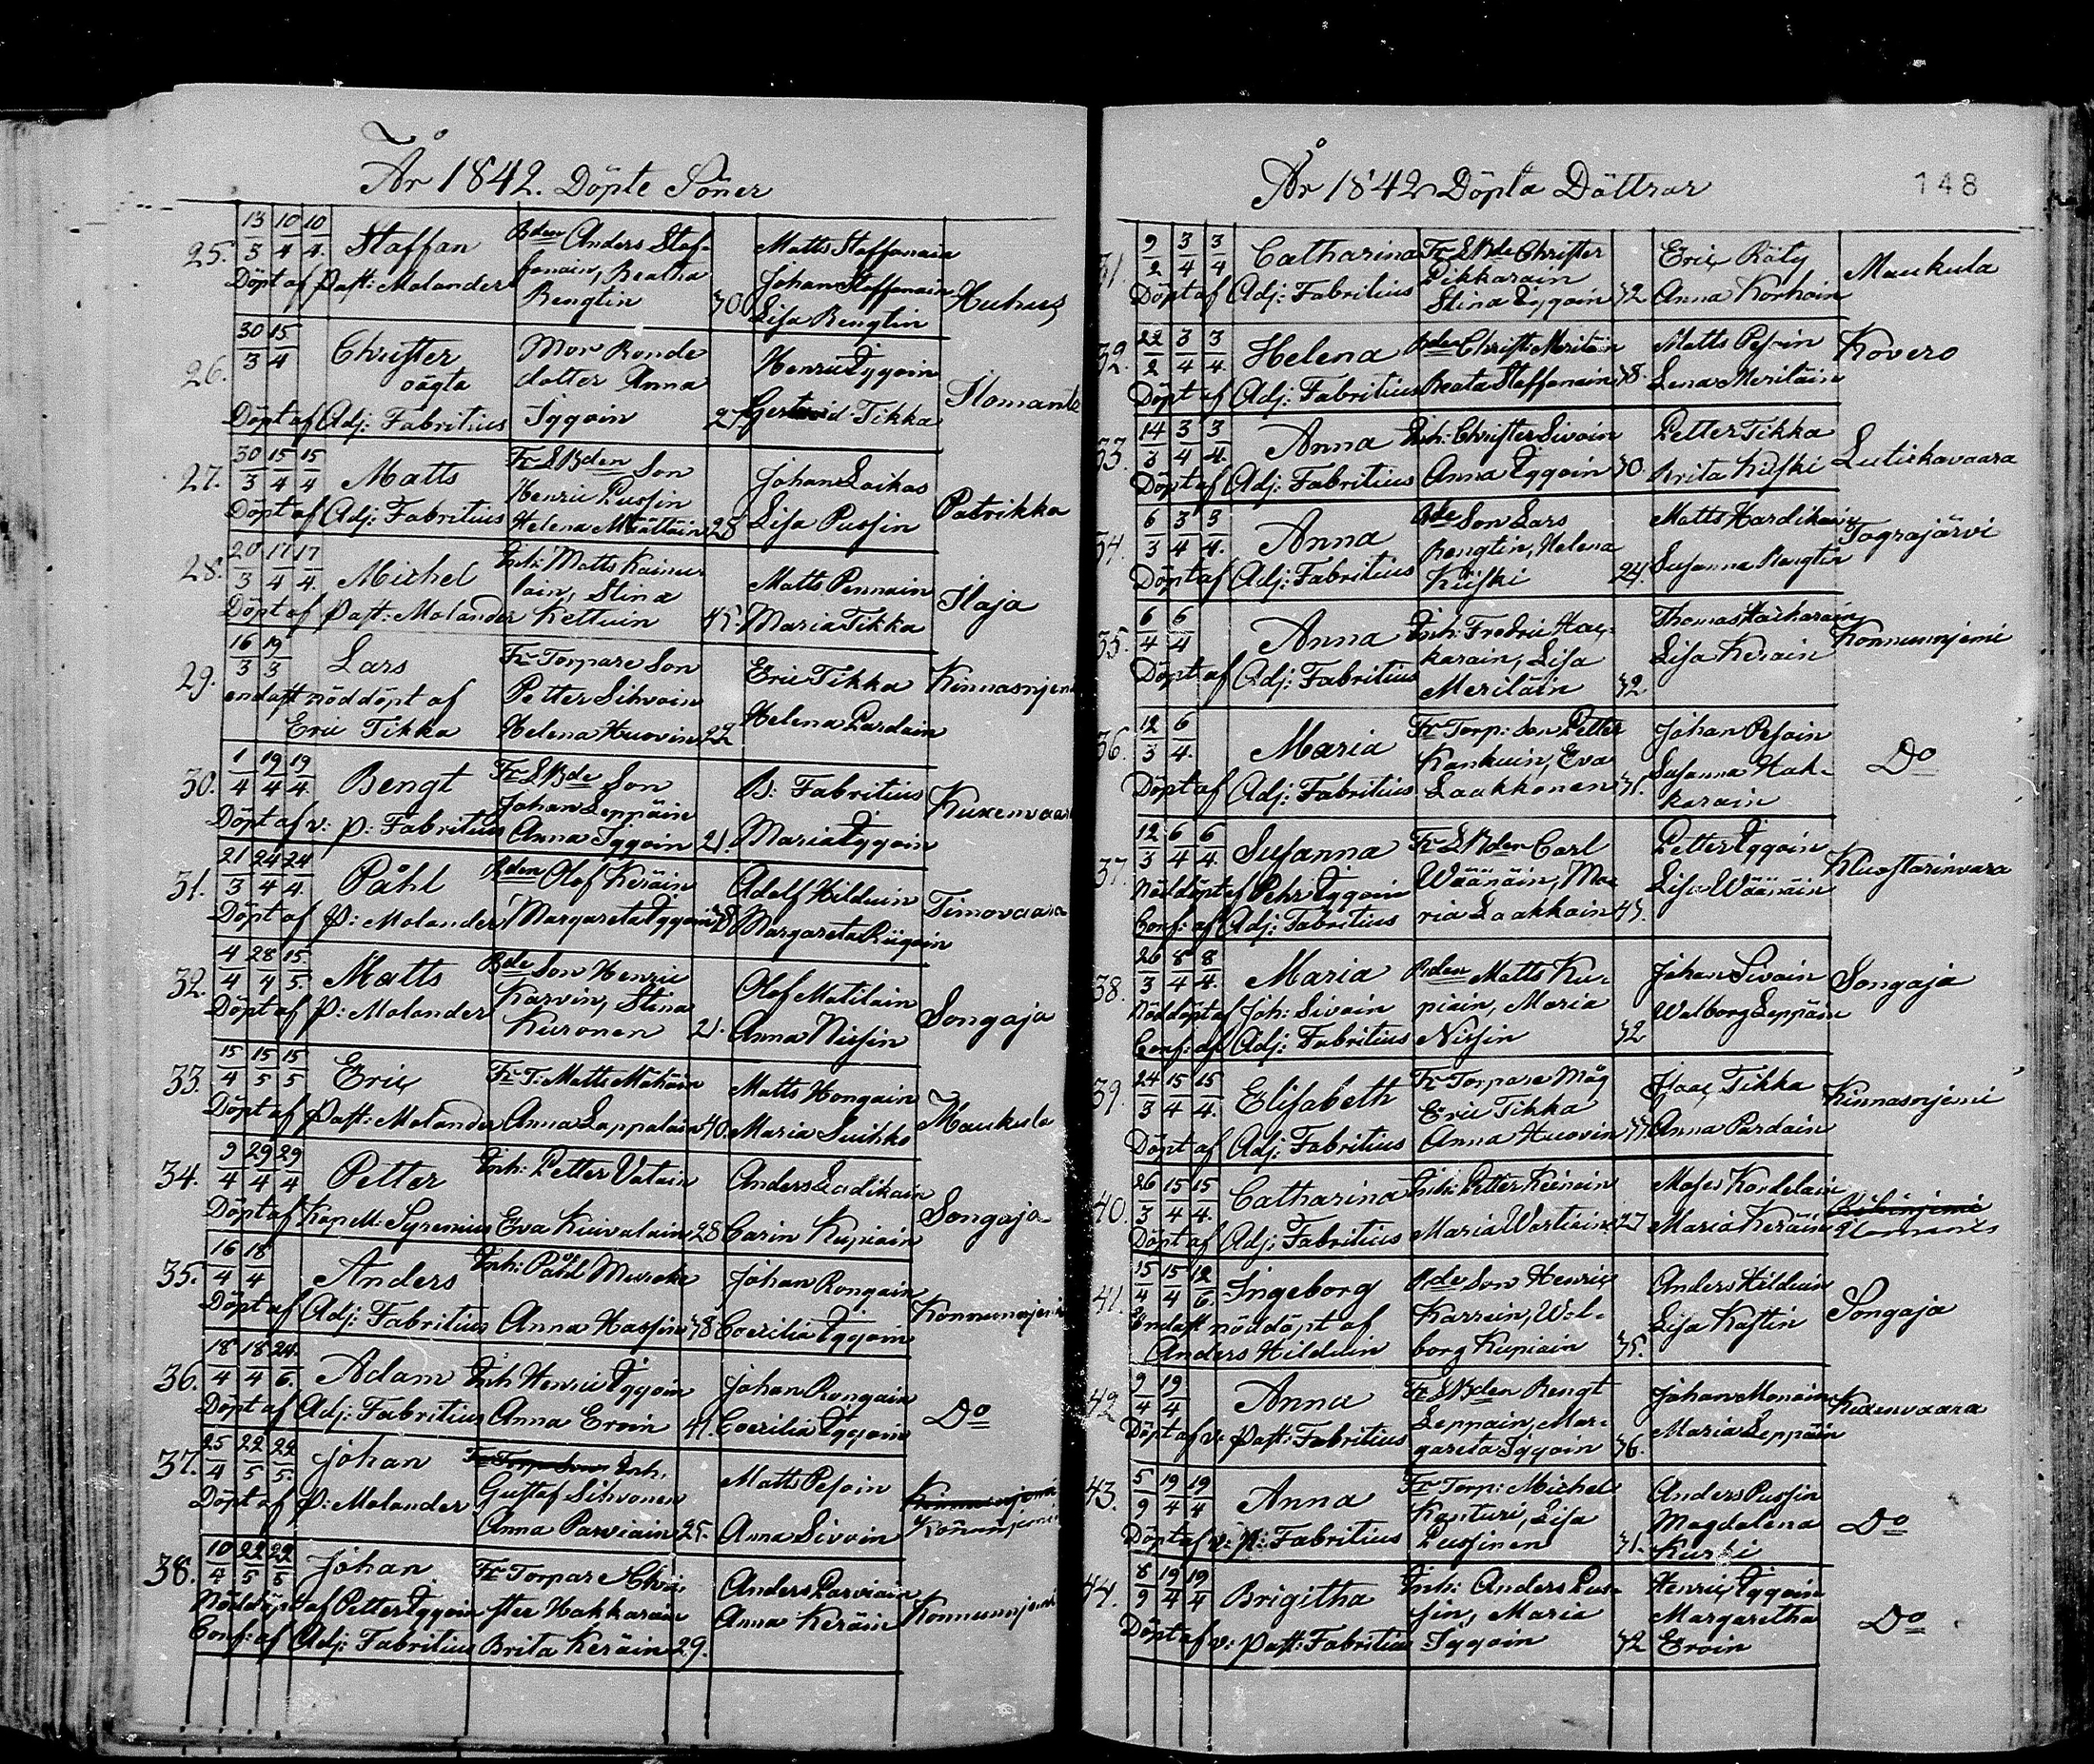 År 1842. Döpte Söner
25. 13/3 10/4 10/4. Staffan Bden Anders Staffanain, Beatha Bengtin 30 Matts Staffanain Johan Staffanain Lisa Bengtin Huhus
Döpt af Past: Molander
26. 30/3 15/4 Christer oägta Mor Bonde dotter Anna Iggoin 27 Henric Iggoin Gertrud Tikka Ilomants
Döpt af Adj: Fabritius
27. 30/3 15/4 15/4 Matts Fr S Bden Son Henric Pussin Helena Määttäin 28 Johan Laikas Lisa Pussin Patrikka
Döpt af Adj: Fabritius
28. 20/3 17/4 17/4. Michel Inh: Matts Kainulain, Stina Kettuin 45. Matts Pennain Maria Tikka Ilaja
Döpt af Past: Molander
29. 16/3 19/3 Lars Fr Torpare Son Petter Sihvoin Helena Huovin 22 Eric Tikka Helena Pardain Kinnasnjemi
endast nöddöpt af
Eric Tikka
30. 1/4 19/4 19/4. Bengt Fr S Bde Son Johan Leppäin Anna Iggoin 21. B: Fabritius Maria Iggoin Kuxenvaara
Döpt af v: p: Fabritius
31. 21/3 24/4 24/4. Påhl Bden Olof Keräin Margareta Iggoin Adolf Hilduin Margareta Riigoin Timovaara
Döpt af P: Molander
32. 4/4 28/4 15/5. Matts Bde Son Henric Karvin, Stina Kuronen 21. Olof Matilain Anna Nissin Songaja
Döpt af P: Molander
33 15/4 15/5 15/5 Eric Fr T: Matts Mähöin Anna Lappalain 40. Matts Hongain Maria Suihko Maukula
Döpt af Past: Molander
34. 9/4 29/4 29/4 Petter Inh: Petter Vatain Eva Kuivalain 28 Anders Ladikain Carin Kupiain Songaja
Döpt af Kapell: Syrenius
35. 16/4 18/4 Anders Inh: Påhl Murcka Anna Hassin 38 Johan Rongain Coecilia Iggoin Konnunnjemi
Döpt af Adj: Fabritius
36. 18/4 18/4 24/6. Adam Inh Henric Iggoin Anna Eroin 41. Johan Rongain Coecilia Iggoin Do
Döpt af Adj: Fabritius
37. 25/4 22/5 22/5. Johan Fr Torp Son Inh. Gustaf Sihvonen Anna Parviain 25. Matts Pesoin Anna Sivoin Konnunnjemi Koñunnjemi
Döpt af P: Molander
38. 10/4 22/5 22/5 Johan Fr Torpare Christer Hakkarain Brita Keräin 29. Anders Parviain Anna Keräin Konnunnjemi
Nöddöpt af Petter Iggoin
Conf: af Adj: Fabritius
År 1842 Döpta Döttrar 148
31. 9/2 3/4 3/4 Catharina Fr S Bde Christer Pikkarain Stina Iggoin 32 Eric Räty Anna Korhoin Maukula
Döpt af Adj: Fabritius
32. 22/2 3/4 3/4. Helena Bden Christ: Meriläin Beata Staffanain 38. Matts Pesoin Lena Meriläin Kovero
Döpt af Adj: Fabritius
33. 14/3 3/4 3/4. Anna Inh: Christer Sivoin Anna Iggoin 30. Petter Tikka Brita Kiiski Lutickavaara
Döpt af Adj: Fabritius
34. 6/3 3/4 3/4. Anna Bde Son Lars Bengtin, Helena Kiiski 24. Matts Hardikain Susanna Bengtin Tograjärvi
Döpt af Adj: Fabritius
35. 6/4 6/4 Anna Inh: Fredric Hackarain, Lisa Meriläin 32 Thomas Hackarain Lisa Keräin Konnunnjemi
Döpt af Adj: Fabritius
36. 12/3 6/4. Maria Fr Torp: Son Petter Kankuin, Eva Laakkonen 31. Johan Pesoin Susanna Hakkarain Do
Döpt af Adj: Fabritius
37. 12/3 6/4 6/4. Susanna Fr S Bden Carl Wäänäin, Maria Laakkain 45. Petter Iggoin Lisa Wäänäin Kluostarinvara
Nöddöpt af Pehr Iggoin
Conf: af Adj: Fabritius
38. 26/3 8/4 8/4. Maria Bden Matts Kupiain, Maria Nissin 32 Johan Sivoin Walborg Leppäin Songaja
Nöddöpt af Joh: Sivoin
Conf: af Adj: Fabritius
39. 24/3 15/4 15/4. Elisabeth Fr Torpare Måg Eric Tikka Anna Huovin Isac Tikka Anna Pardain Kinnasnjemi
Döpt af Adj: Fabritius
40. 26/3 15/4 15/4. Catharina Inh: Petter Keinoin Maria Wartiain 27 Moses Kondelain Maria Keräin Ilomants
Döpt af Adj: Fabritius
41. 15/4 15/4 12/6. Ingeborg Bde Son Henric Karvin, Walborg Kupiain 35. Anders Hilduin Lisa Kastin Songaja
Endast nöddöpt af
Anders Hilduin
42 9/4 19/4 Anna Fr S Bden Bengt Leppäin, Margareta Iggoin 36. Johan Monoin Maria Leppäin Kuxenvaara
Döpt af v: Past: Fabritius
43. 5/9 19/4 19/4 Anna Fr Torp: Michel Konturi, Lisa Pussinen 31. Anders Pussin Magdalena Kurki Do
Döpt af v: P: Fabritius
44. 8/9 19/4 19/4 Brigitha Inh: Anders Pussin, Maria Iggoin 32 Henric Iggoin Margaretha Eroin Do
Döpt af v: Past: Fabritius